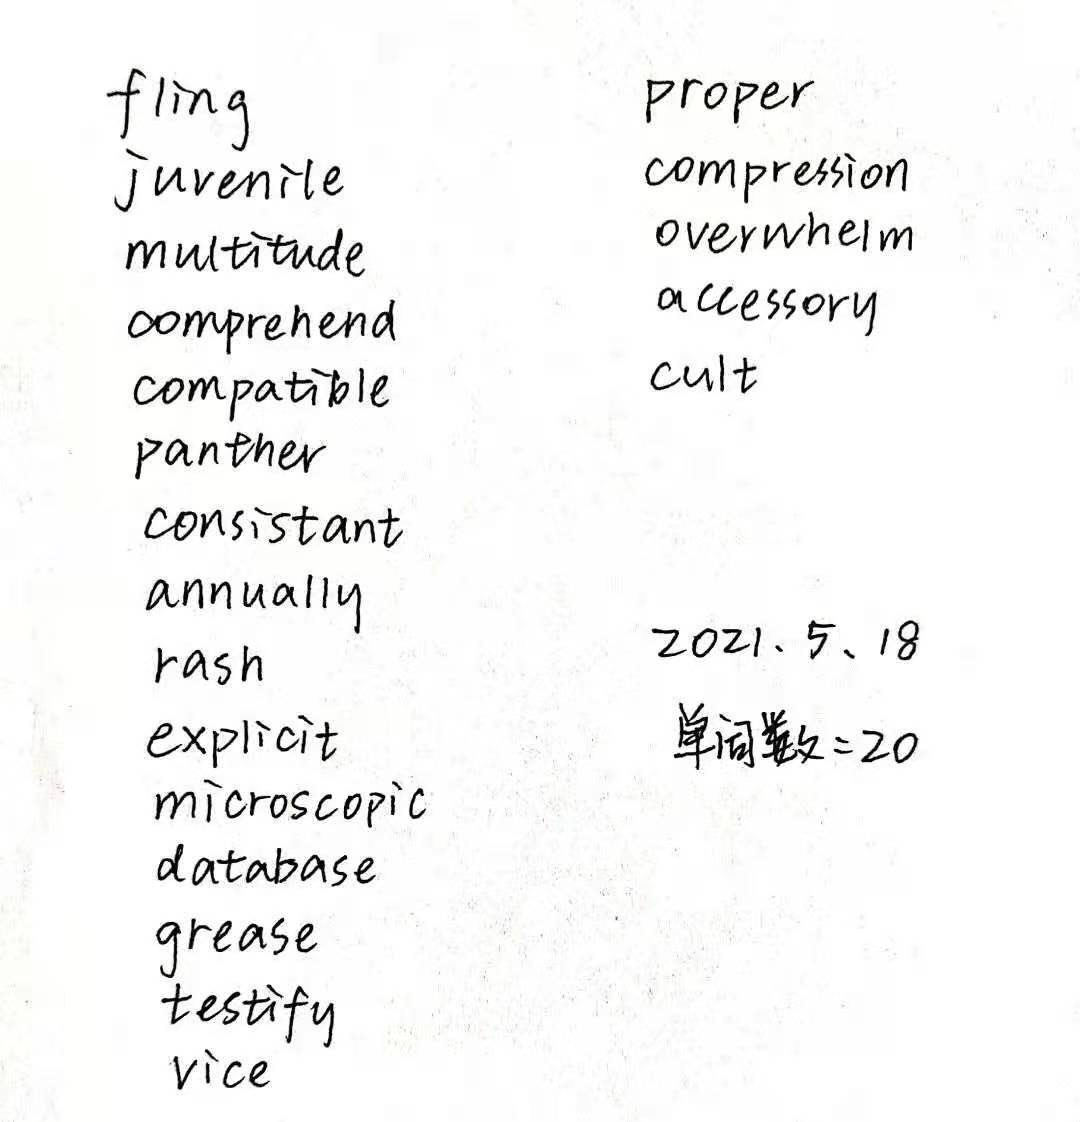 fling
juvenile
multitude
comprehend
compatible
panther
consistant
annually
rash
explicit
microscopic
database
grease
testify
vice
proper
compression
overwhelm
accessory
cult
2021、5、18
单词数=20